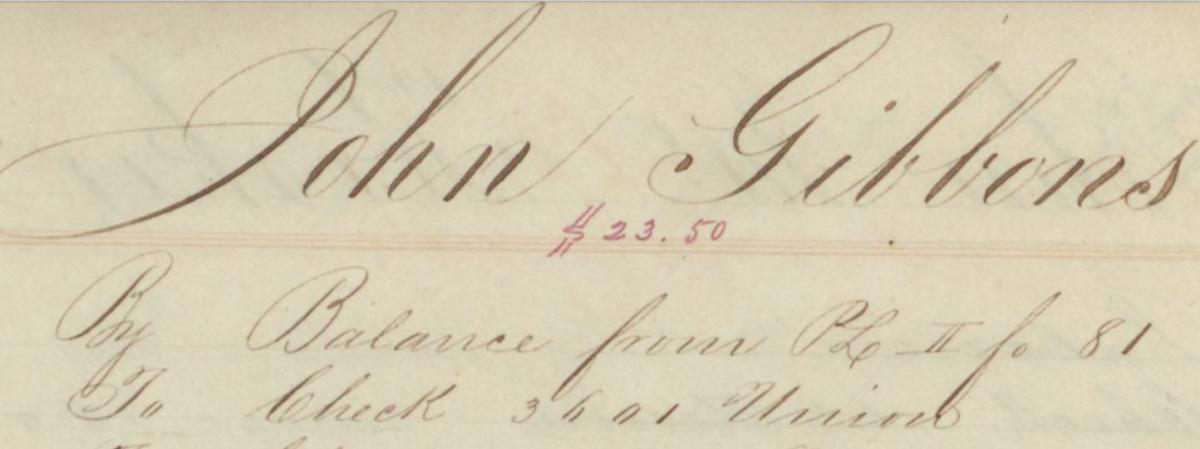 John Gibbons
$ 23.50
By Balance from PL II fo 81
To Check Union